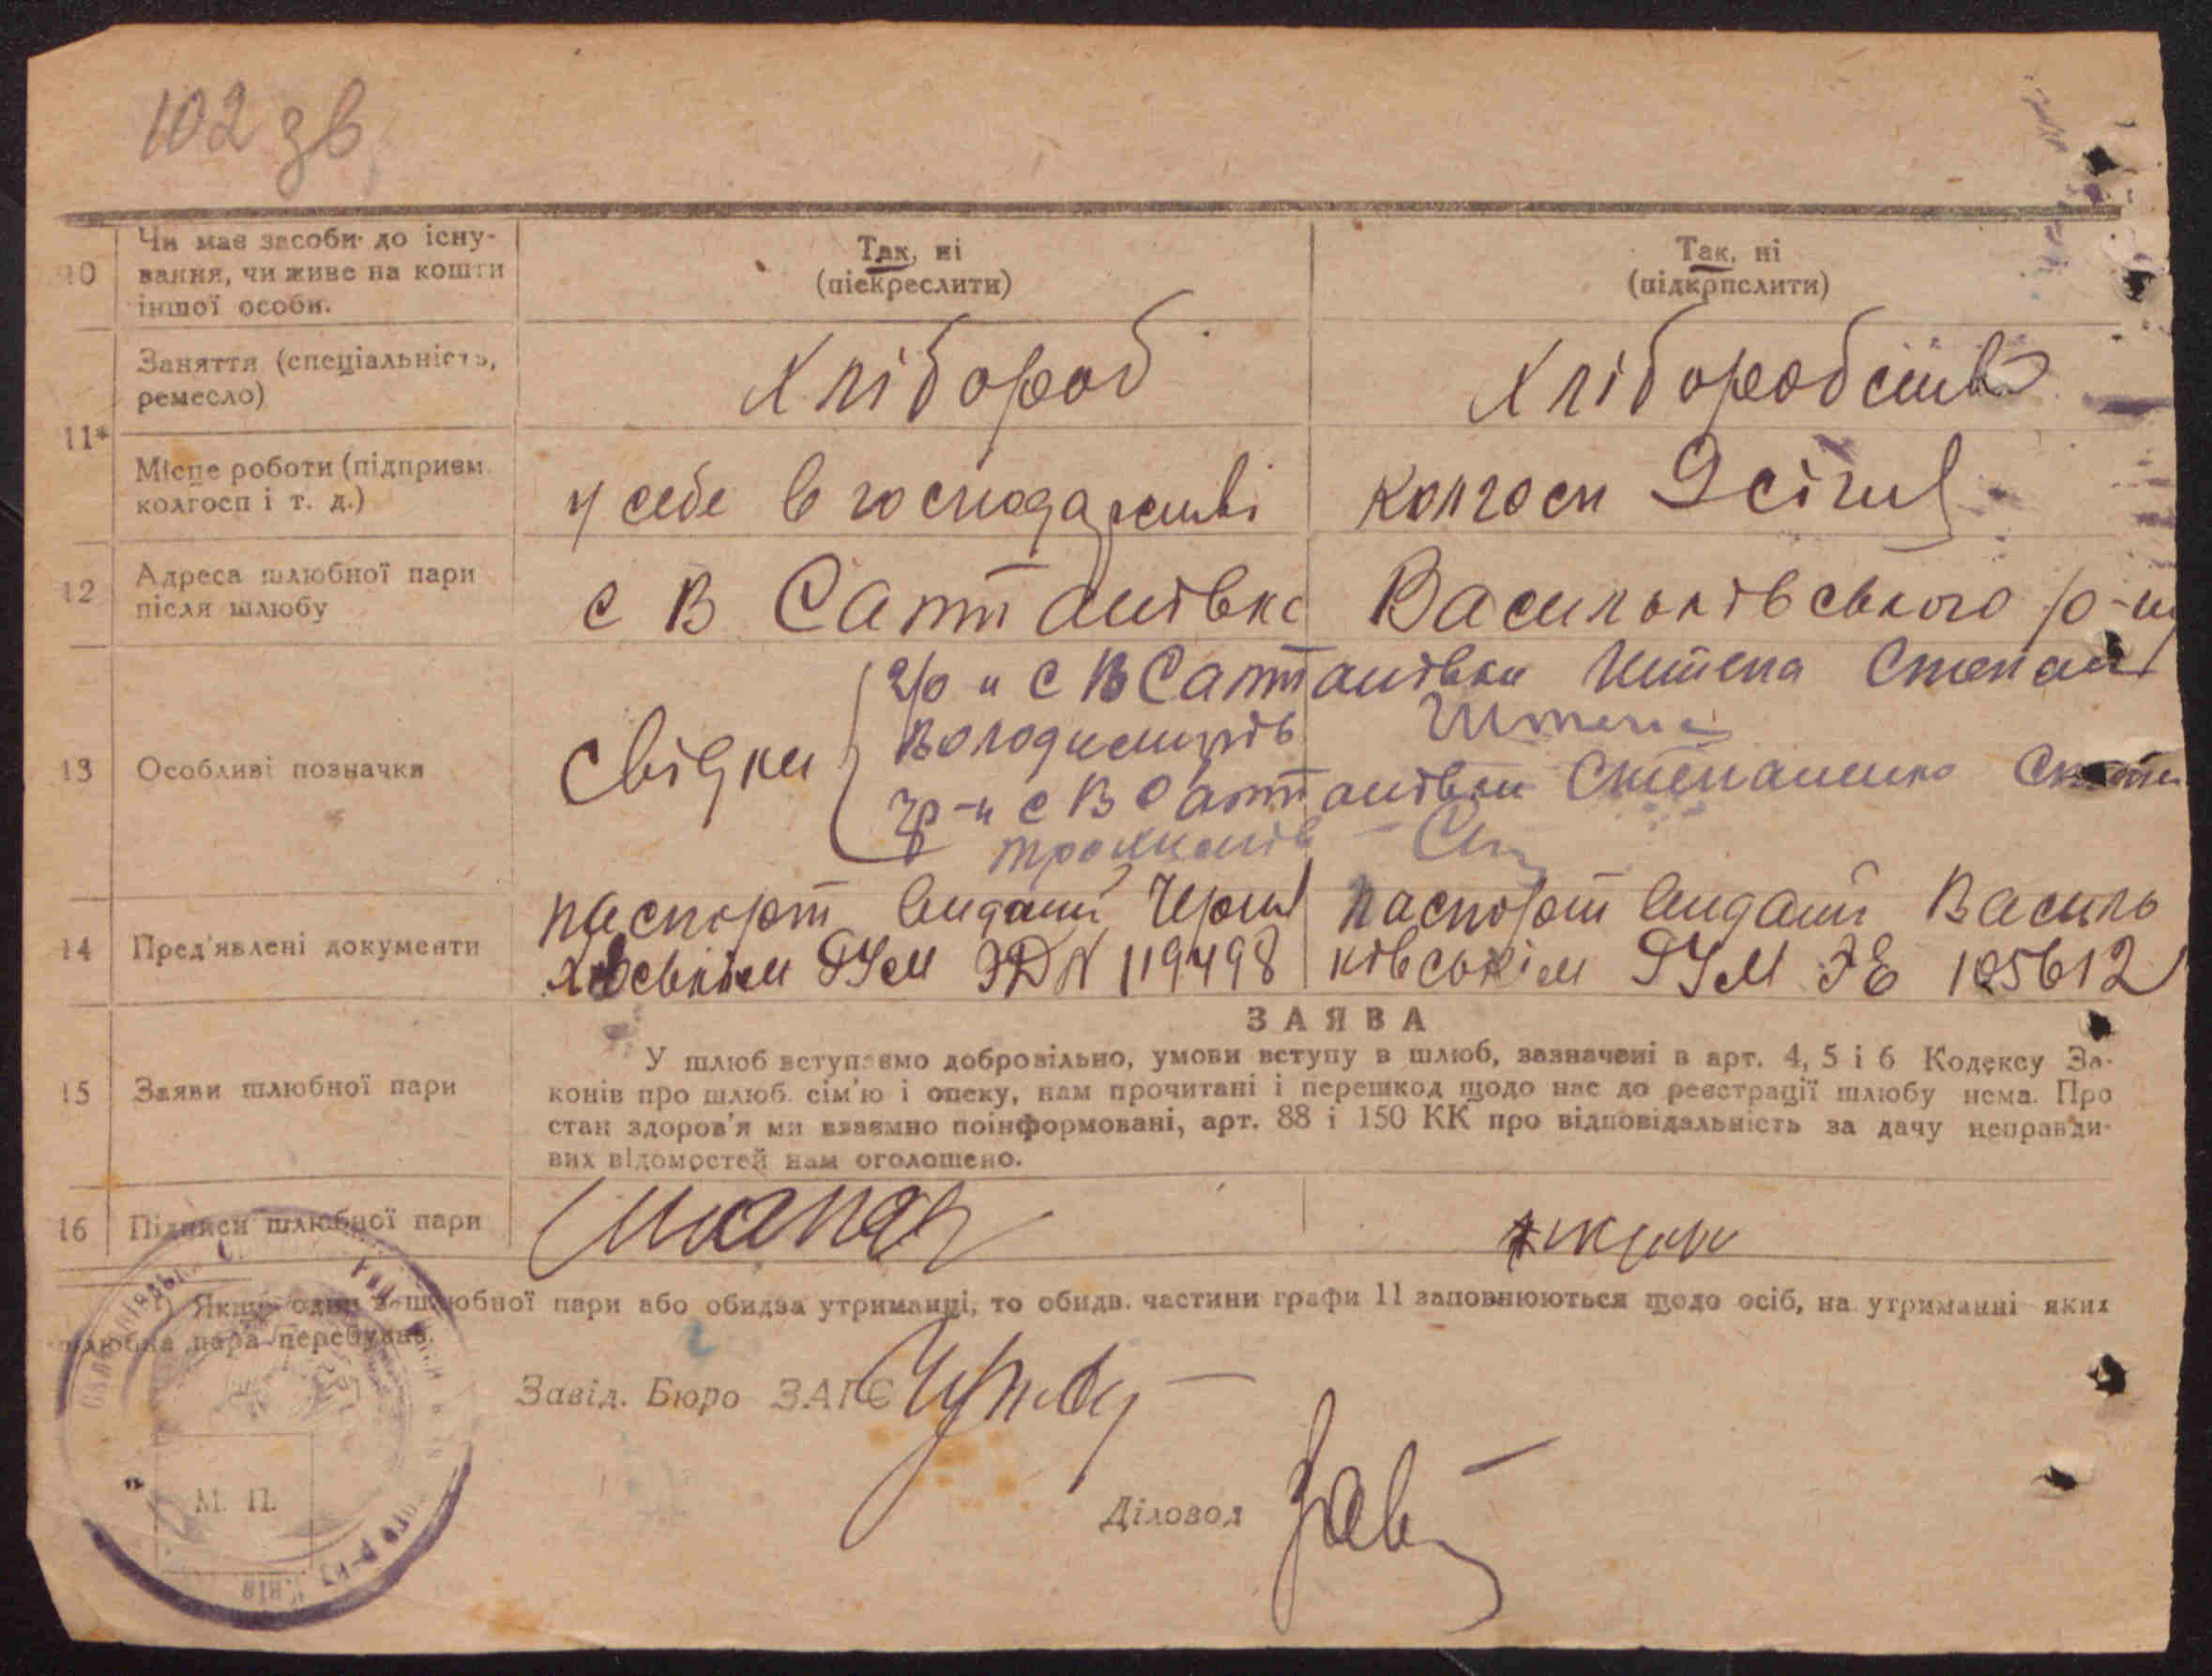 102 зв
10 Чи має засоби до існу-
вання, чи живе на кошти
іншої особи.
Так, ні
(піекреслити)
Так, ні
(підкрпслити)
11* Заняття (спеціальність,
ремесло)
Хлібороб
Хліборобство
Місце роботи (підприєм.
колгосп і т. д.)
у себе в господарстві
колгосп
12 Адреса шлюбної пари
після шлюбу
с В Салтанівка Васильківського р-ну
13 Особливі позначки
свідки
гр-н с В Салтанівки Штепа Степан
Володимирів Штепа
гр-н с В Салтанівки Степаненко
Трохимів
14 Пред'явлені документи
паспорт виданий
паспорт виданий Василь
РУМ ЭД N 119498
ківським РУМ ЭЕ 105612
ЗАЯВА
15 Заяви шлюбної пари
У шлюб вступаємо добровільно, умови вступу в шлюб, зазначені в арт. 4, 5 і 6 Кодексу За-
конів про шлюб. сім'ю і опеку, нам прочитані і перешкод щодо нас до реєстрації шлюбу нема. Про
стан здоров'я ми взаємно поінформовані, арт. 88 і 150 КК про відповідальність за дачу неправди-
вих відомостей нам оголошено.
16 Підписи шлюбної пари
*) Якщо один з шлюбної пари або обидва утриманці, то обидв. частини графи 11 заповнюються щодо осіб, на утриманні яких
шлюбна пара перебуває.
Завід. Бюро ЗАГС
Діловод
М. П.